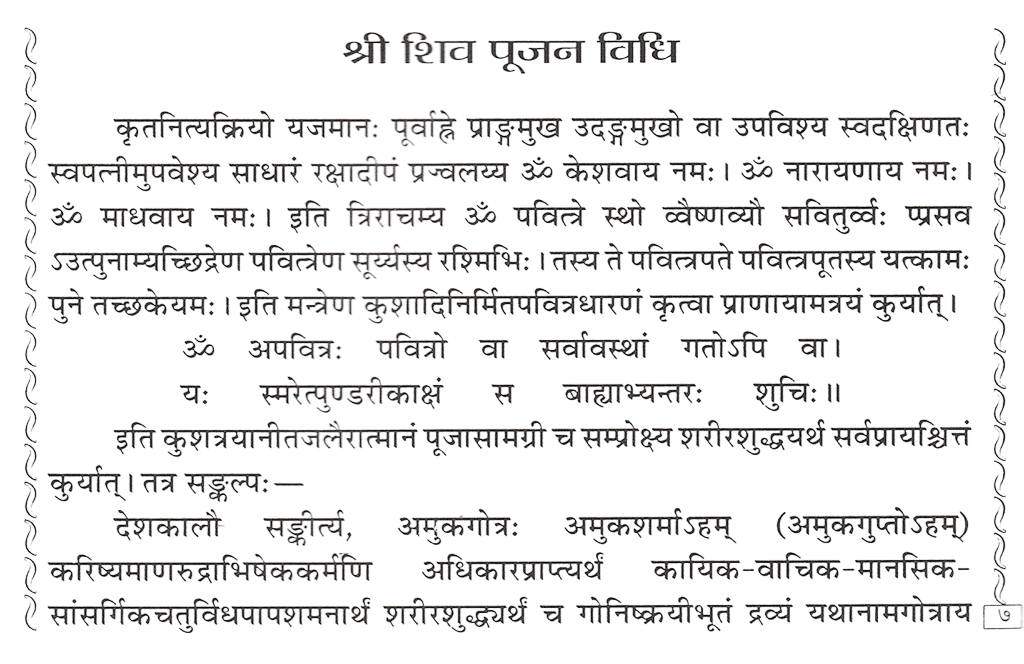 श्री शिव पूजन विधि
कृतनित्यक्रियो यजमानः पूर्वाह्ने प्राङ्गमुख उदङ्गमुखो वा उपविश्य स्वदक्षिणतः
स्वपत्नीमुपवेश्य साधारं रक्षादीपं प्रज्वलय्य ॐ केशवाय नमः। ॐ नारायणाय नमः।
ॐ माधवाय नमः। इति त्रिराचम्य ॐ पवित्रे स्थो व्वैष्णव्यौ सवितुर्व्वः प्प्रसव
ऽउत्पुनाम्यच्छिद्रेण पवित्त्रेण सूर्य्यस्य रश्मिभिः। तस्य ते पवित्त्रपते पवित्त्रपूतस्य यत्कामः
पुने तच्छकेयमः। इति मन्त्रेण कुशादिनिर्मितपवित्रधारणं कृत्वा प्राणायामत्रयं कुर्यात्।
ॐ अपवित्रः पवित्रो वा सर्वावस्थां गतोऽपि वा।
यः स्मरेत्पुण्डरीकाक्षं स बाह्याभ्यन्तरः शुचिः॥
इति कुशत्रयानीतजलैरात्मानं पूजासामग्री च सम्प्रोक्ष्य शरीरशुद्धयर्थ सर्वप्रायश्चित्तं
कुर्यात्। तत्र सङ्कल्पः—
देशकालौ सङ्कीर्त्य, अमुकगोत्रः अमुकशर्माऽहम् (अमुकगुप्तोऽहम्)
करिष्यमाणरुद्राभिषेककर्मणि अधिकारप्राप्त्यर्थं कायिक-वाचिक-मानसिक-
सांसर्गिकचतुर्विधपापशमनार्थं शरीरशुद्ध्यर्थं च गोनिष्क्रयीभूतं द्रव्यं यथानामगोत्राय
७